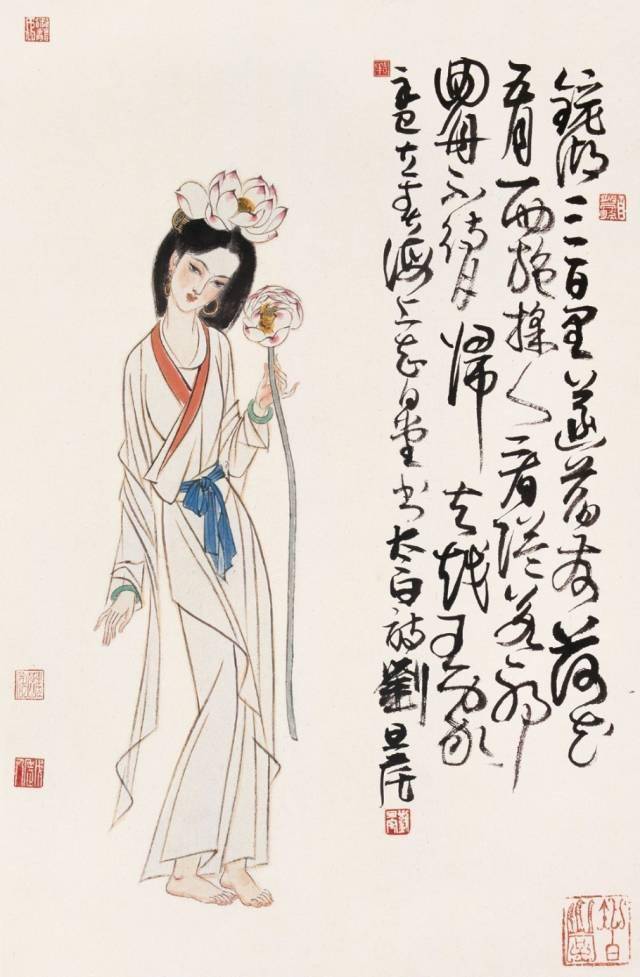 鏡湖三百里菡萏发荷花
五月西施採人看隘若耶
回舟不待月歸去越王家
辛巳立春海上書太白詩劉旦宅